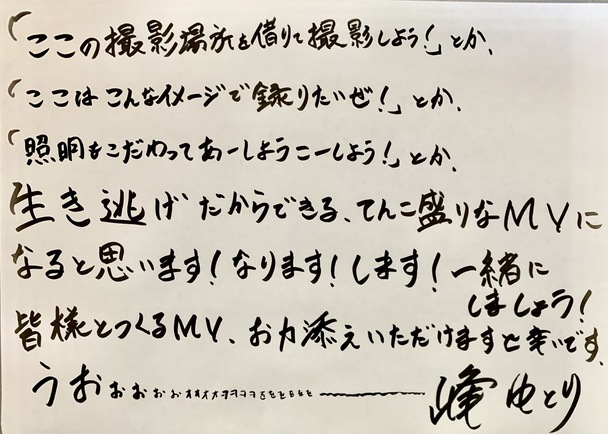 「ここの撮影場所を借りて撮影しよう!」とか、
「ここはこんなイメージで録りたいぜ!」とか、
「照明もこだわってあーしようこーしよう!」とか、
生き逃げだからできる、てんこ盛りなMVに
なると思います!なります!します!一緒に
しましょう!
皆様とつくるMV、お力添えいただけますと幸いです。
うおぉぉぉぉ
峰ゆとり